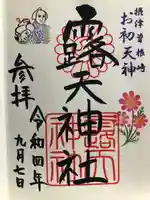 摂津曽根崎
お初天神
露天神社
参拝
令和四年
九月七日